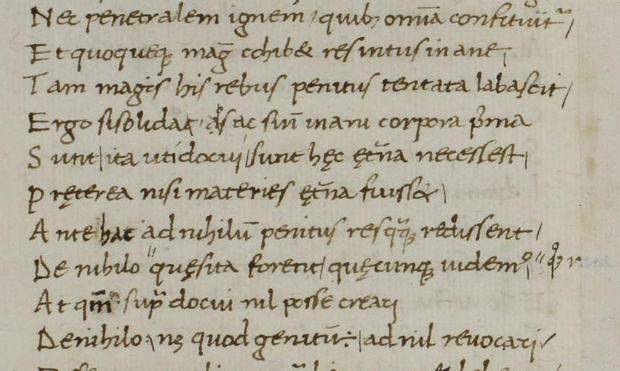 Nec penetralem ignem, quib; omnia conficiunt᷑,
Et quoqueq; mag̅ cohib& res intus inane,
Tam magis his rebus penitus tentata labascit,
Ergo si solida ac sin̅ inani corpora p̅ma
Sunt, ita uti docui, sunt hęc ęt̅na necessest,
Pręterea nisi materies ęt̅na fuiss&,
Ante hac ad nihilu̅ penitus resq̅q; redissent,
De nihilo quęsita forent, quęcunq; uidemꝰ,
At qm̅ sup̅ docui nil posse creari
De nihilo, nq; quod genitu̅ ÷, ad nil revocari,